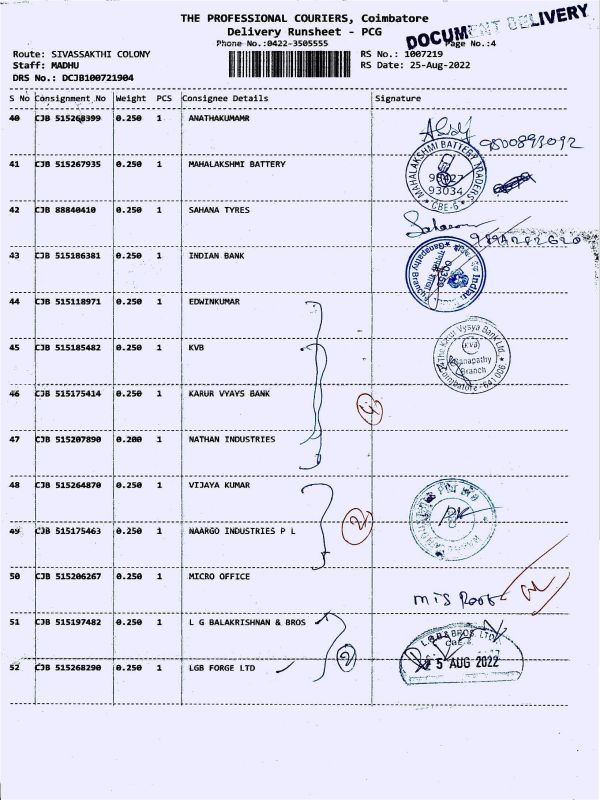 THE PROFESSIONAL COURIERS, Coimbatore
Delivery Runsheet - PCG
DOCUMENT DELIVERY
Phone No.:0422-3505555
Page No.:4
Route: SIVASSAKTHI COLONY
RS No.: 1007219
Staff: MADHU
RS Date: 25-Aug-2022
DRS No.: DCJB100721904
S No Consignment No Weight PCS Consignee Details Signature
40 CJB 515268399 0.250 1 ANATHAKUMAMR
9500893092
41 CJB 515267935 0.250 1 MAHALAKSHMI BATTERY
MAHALAKSHMI BATTERY TRADERS
93034
* CBE-6 *
42 CJB 88840410 0.250 1 SAHANA TYRES
43 CJB 515186381 0.250 1 INDIAN BANK
Ganapathy Branch
Indian
44 CJB 515118971 0.250 1 EDWINKUMAR
45 CJB 515185482 0.250 1 KVB
The Karur Vysya Bank Ltd.,
kvb
Ganapathy
Branch
Coimbatore - 641 006
46 CJB 515175414 0.250 1 KARUR VYAYS BANK
4
47 CJB 515207890 0.200 1 NATHAN INDUSTRIES
48 CJB 515264870 0.250 1 VIJAYA KUMAR
2
49 CJB 515175463 0.250 1 NAARGO INDUSTRIES P L
50 CJB 515206267 0.250 1 MICRO OFFICE
51 CJB 515197482 0.250 1 L G BALAKRISHNAN & BROS
L.G.B & BROS. LTD
CBE-6
2
25 AUG 2022
52 CJB 515268290 0.250 1 LGB FORGE LTD